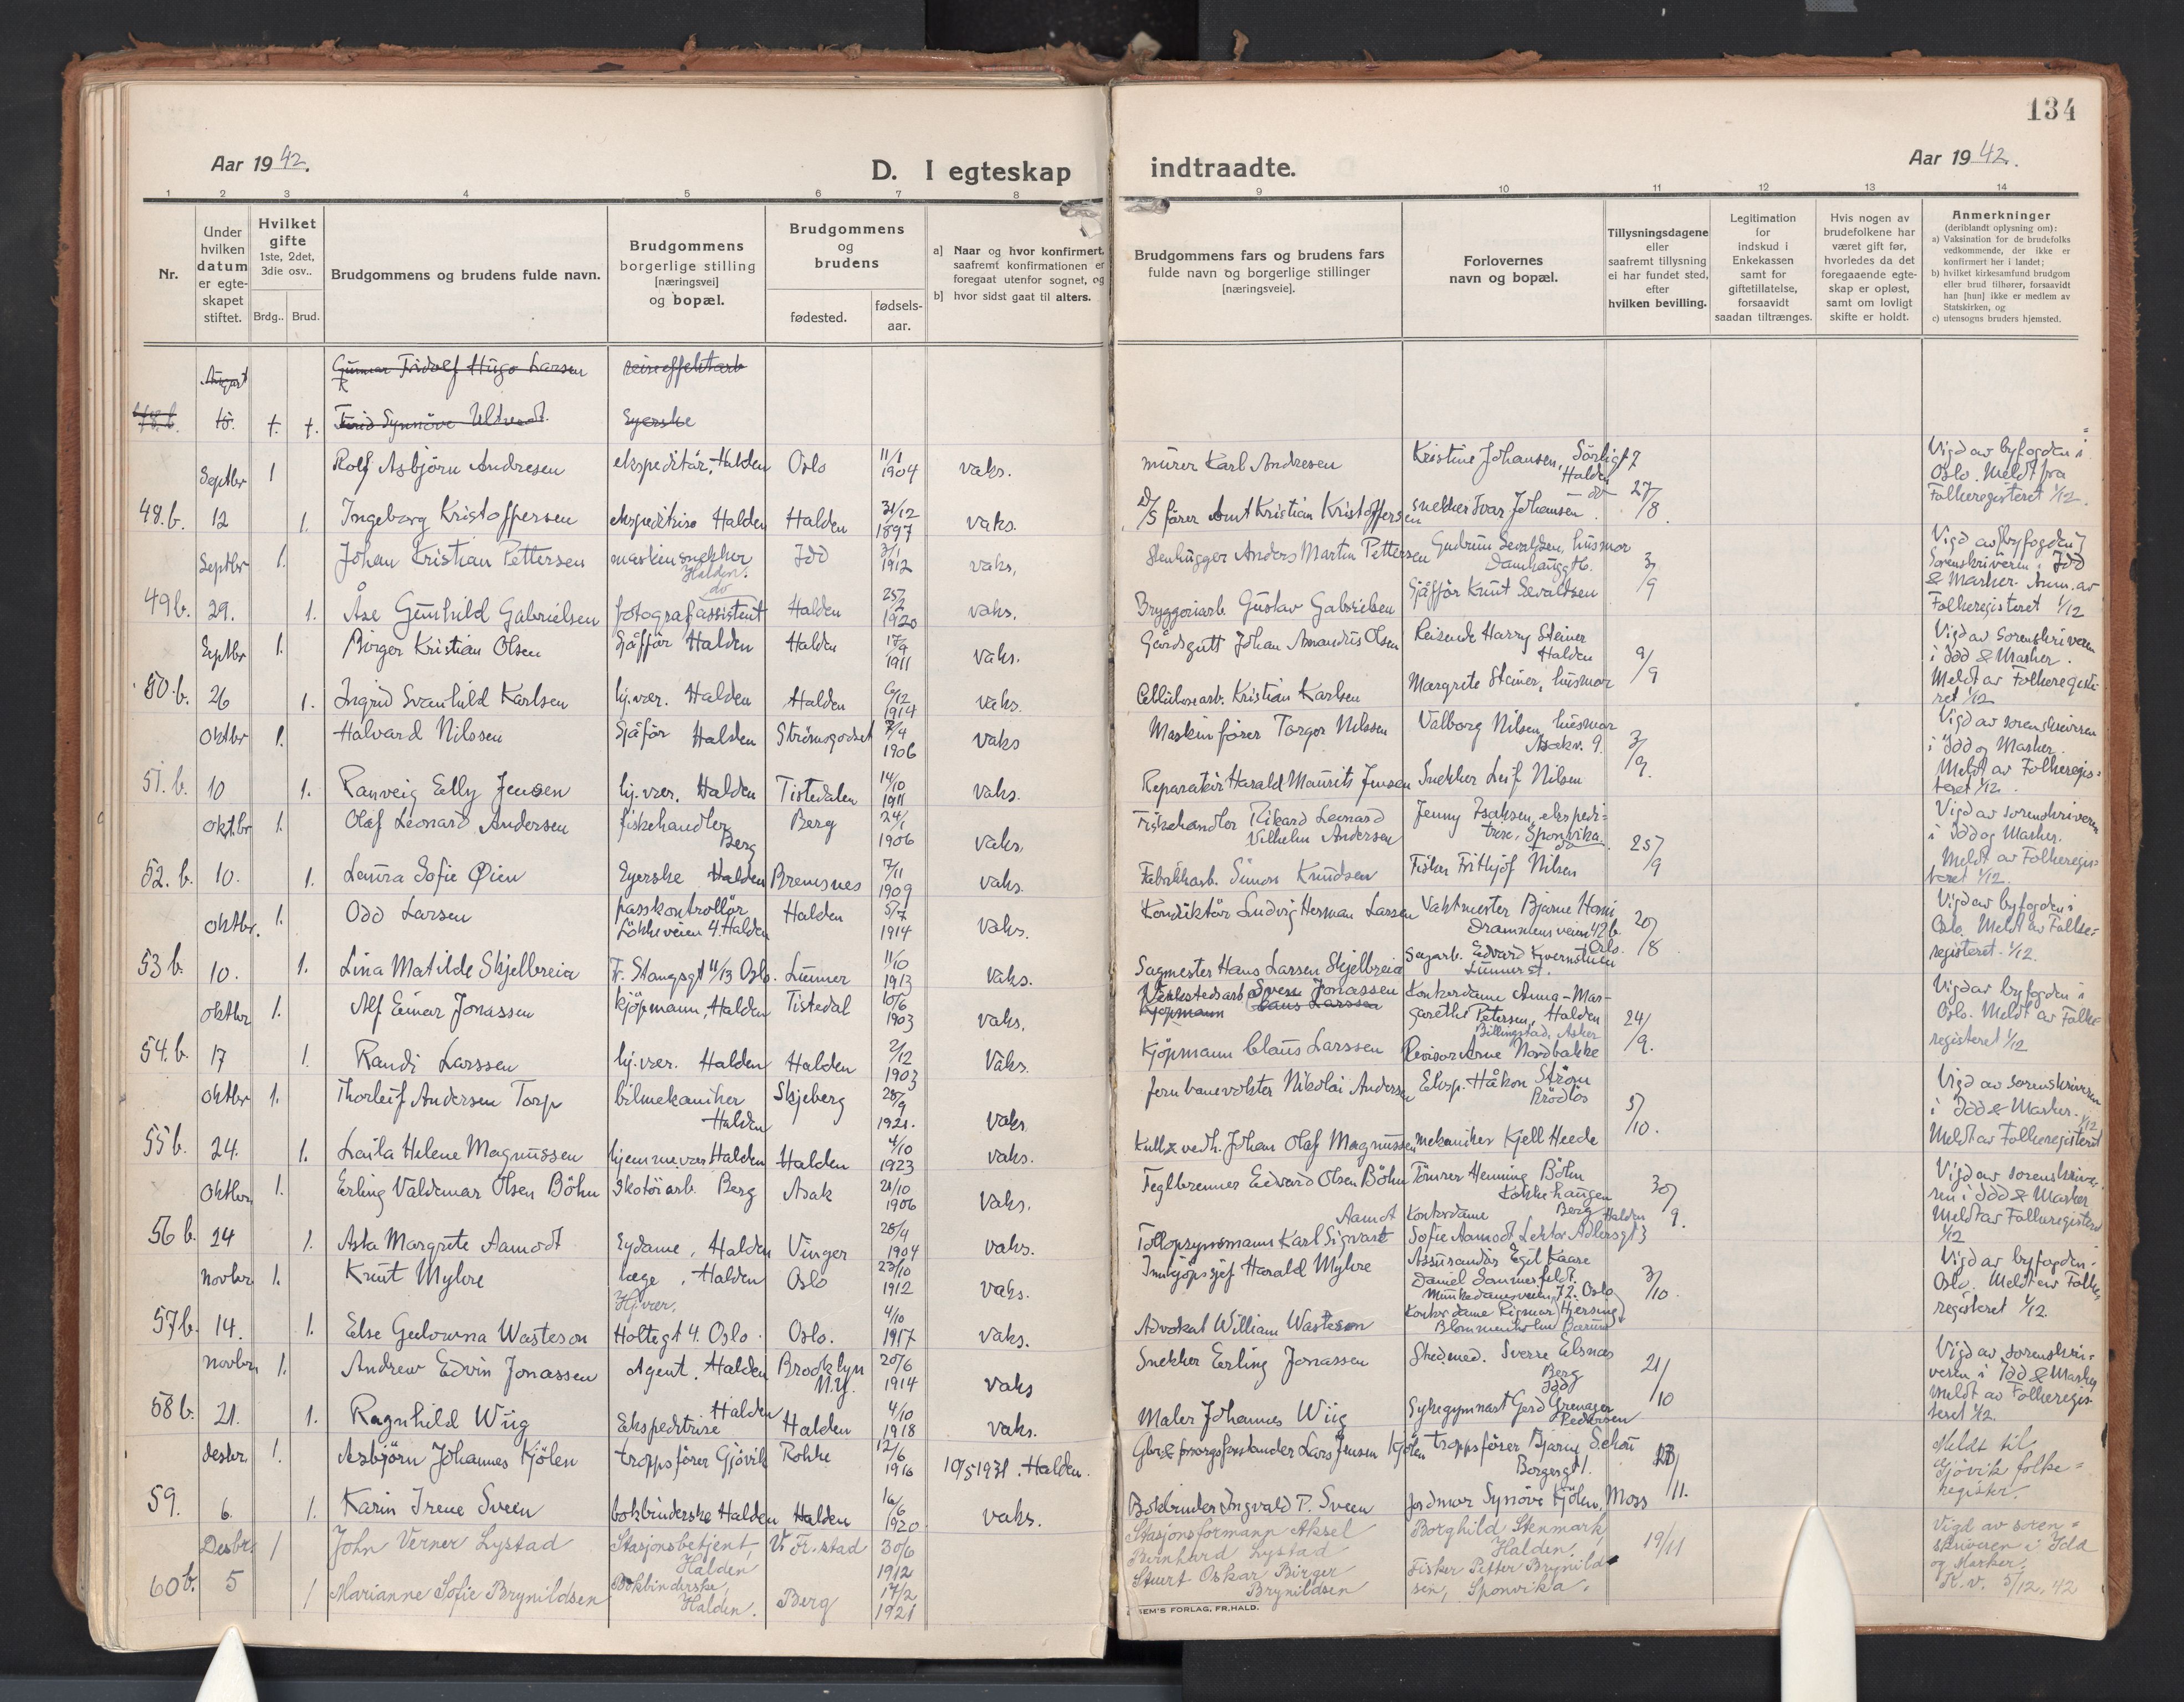 134
Aar 1942.
D. I egteskap indtraadte.
Aar 1942.
1 2 3 4 5 6 7 8 9 10 11 12 13 14
Nr.
Under hvilken datum er egteskapet stiftet.
Hvilket gifte 1ste, 2det, 3die osv..
Brdg.. Brud.
Brudgommens og brudens fulde navn.
Brudgommens borgerlige stilling [næringsvei] og bopæl.
Brudgommens og brudens
fødested. fødsels-aar.
a] Naar og hvor konfirmert, saafremt konfirmationen er foregaat utenfor sognet, og
b] hvor sidst gaat til alters.
Brudgommens fars og brudens fars fulde navn og borgerlige stillinger [næringsveie].
Forlovernes navn og bopæl.
Tillysningsdagene eller saafremt tillysning ei har fundet sted, efter hvilken bevilling.
Legitimation for indskud i Enkekassen samt for giftetillatelse, forsaavidt saadan tiltrænges.
Hvis nogen av brudefolkene har været gift før, hvorledes da det foregaaende egteskap er opløst, samt om lovligt skifte er holdt.
Anmerkninger (deriblandt oplysning om):
a) Vaksination for de brudefolks vedkommende, der ikke er konfirmert her i landet;
b) hvilket kirkesamfund brudgom eller brud tilhører, forsaavidt han [hun] ikke er medlem av Statskirken, og
c) utensogns bruders hjemsted.
August Gunnar Fridolf Hugo Larsen
48.b. 15. 1. 1. Synnöve Syerske
Septbr 1 Rolf Asbjörn Andresen ekspeditör, Halden Oslo 11/1 1904 vaks. mürer Karl Andresen Kristine Johansen, Sörligt 7 Halden Vigd av byfogden i Oslo. Meldt fra Folkeregisteret 1/12.
48.b. 12 1. Ingeborg Kristoffersen ekspeditrise Halden Halden 31/12 1897 vaks. D/S förer Arnt Kristian Kristoffersen snekker Ivar Johansen. – do – 27/8.
Septbr 1. Johan Kristian Pettersen maskinsnekker Halden. Idd 3/1 1912 vaks. Stenhugger Anders Martin Pettersen Gudrun Sevaldsen, husmor Damhaugg 16. 3/9 Vigd av (byfogden) Sorenskriveren i Idd & Marker. Anm. av Folkeregisteret 1/12
49b. 29. 1. Åse Gunhild Gabrielsen fotografassistent do Halden 25/2 1920 vaks. Bryggeriarb. Gustav Gabrielsen Sjåfför Knut Sevaldsen
Septbr 1. Birger Kristian Olsen Sjåfför Halden Halden 17/9 1911 vaks. Gårdsgutt Johan Amandus Olsen Reisende Harry Steiner Halden 9/9 Vigd av Sorenskriveren i Idd & Marker. Meldt av Folkeregisteret 1/12
50.b. 26 1. Ingrid Svanhild Karlsen hj.vær. Halden Halden 6/12 1914 vaks. Cellulosearb. Kristian Karlsen Margrete Steiner, husmor
Oktbr 1. Halvard Nilssen Sjåför Halden Strömsgodset 7/4 1906 vaks Maskinförer Torger Nilssen Valborg Nilsen, husmor Asakv. 9. 3/9. Vigd av sorenskriveren i Idd og Marker. Meldt av Folkeregisteret 1/12.
51.b. 10 1. Ranveig Elly Jensen hj.vær. Halden Tistedalen 14/10 1911 vaks. Reparatör Harald Maurits Jensen Snekker Leif Nilsen
Oktbr 1. Olaf Leonard Andersen fiskehandler Berg Berg 24/1 1906 vaks. Fiskehandler Rikard Leonard Vilhelm Andersen Jenny Isaksen, ekspeditrise, Sponvika. 25/9 Vigd av sorenskriveren i Idd og Marker. Meldt av Folkeregisteret 1/12.
52.b. 10. 1. Laura Sofie Øien Syerske Halden Bremsnes 7/11 1909 vaks. Fabrikkarb. Simon Knudsen Fisker Frithjof Nilsen do
Oktbr. 1. Odd Larsen passkontrollör Lökkeveien 4. Halden Halden 5/7 1914 vaks. Konduktör Ludvig Herman Larsen Vaktmester Bjarne Drammensveien 42b. Oslo. 20/8 Vigd av byfogden i Oslo. Meldt av Folkeregisteret 1/12.
53b. 10. 1. Lina Matilde Skjelbreia Fr. Stangsgt 11/13 Oslo. Lunner 11/10 1913 vaks. Sagmester Hans Larsen Skjelbreia Sagarb. Edvard Kvernstuen Lunner st.
Oktbr 1. Alf Einar Jonassen Kjöpmann, Halden Tistedal 10/6 1903 vaks. Verkstedsarb. Sverre Jonassen Kontordame Anna-Margrethe Petersen, Halden 24/9. Vigd av byfogden i Oslo. Meldt av Folkeregisteret 1/12
54.b. 17 1. Randi Larssen hj.vær. Halden Halden 2/12 1903 Vaks. Kjöpmann Claus Larssen Billingstad, Asker Revisor Arne Nordbakke
Oktbr 1. Thorleif Andersen Torp bilmekaniker Halden Skjeberg 28/9 1921. vaks Jernbanevokter Nikolai Andersen Eksp. Håkon Ström Brödlös 5/10. Vigd av Sorenskriveren i Idd & Marker. Meldt av Folkeregisteret 1/12
55b. 24. 1. Laila Helene Magnussen hjemmevær. Halden Halden 4/10 1923 vaks. Kull & vedh. Johan Olaf Magnussen mekaniker Kjell Heede
Oktbr 1. Erling Valdemar Olsen Böhn Skotöiarb. Berg Asak 21/10 1906 vaks. Teglbrenner Edvard Olsen Böhn Tömrer Henning Böhn Kökkehaugen Berg 30/9. Vigd av sorenskriveren i Idd & Marker Meldt av Folkeregisteret 1/12
56b. 24 1. Asta Margrete Aamodt Sydame, Halden Vinger 28/9 1904 vaks. Tollopsynsmann Karl Sigvart Aamot Kontordame Sofie Aamodt Lektor Adlersgt 3 Halden
Novbr 1. Knut Myhre læge, Halden Oslo 23/10 1912 vaks. Innkjöpssjef Harald Myhre Assurandör Egil Kaare Daniel Sommerfeldt. Munkedamsveien 72. Oslo 3/10. Vigd av byfogden i Oslo. Meldt av Folkeregisteret 1/12.
57b. 14. 1. Else Gulowna Wasteson Hj.vær. Holtegt 4. Oslo. Oslo. 4/10 1917 vaks. Advokat William Wasteson Kontordame Rigmor Hjersing Blommenholm Bærum
Novbr 1. Andrew Edvin Jonassen Agent. Halden Brooklyn N.Y. 20/6 1914 vaks Snekker Erling Jonassen Stud.med. Sverre Elsnas Berg Idd 21/10 Vigd av sorenskriveren i Idd & Marker Meldt av Folkeregisteret 1/12.
58b. 21. 1. Ragnhild Wiig Ekspeditrise Halden Halden 4/10 1918 vaks. Maler Johannes Wiig Sykegymnast Gerd Grenager Pedersen
desbr. 1. Asbjörn Johannes Kjölen troppsförer Gjövik Rokke 12/6 1916 10/5 1931. Halden. Lars Jensen Kjölen troppsförer Bjarne Schou Borgergt 1. /11. Meldt til Gjövik folkeregister.
59. 6. 1. Karin Irene Sveen bokbinderske Halden Halden 16/6 1920 vaks. Bokbinder Ingvald P. Sveen Jordmor Synnöve Kjölen, Moss
Desbr. 1 John Verner Lystad Stasjonsbetjent, Halden V. Fr.stad 30/6 1912 Stasjonsformann Aksel Bernhard Lystad Borghild Stenmark, Halden. 19/11 Vigd av sorenskriveren i Idd og Marker. K.v. 5/12.42
60b. 5 1 Marianne Sofie Brynildsen Bokbinderske, Halden. Berg 17/2 1921 Stuert Oskar Birger Brynildsen Fisker Petter Brynildsen, Sponvika.
SEM'S FORLAG, FR.HALD.